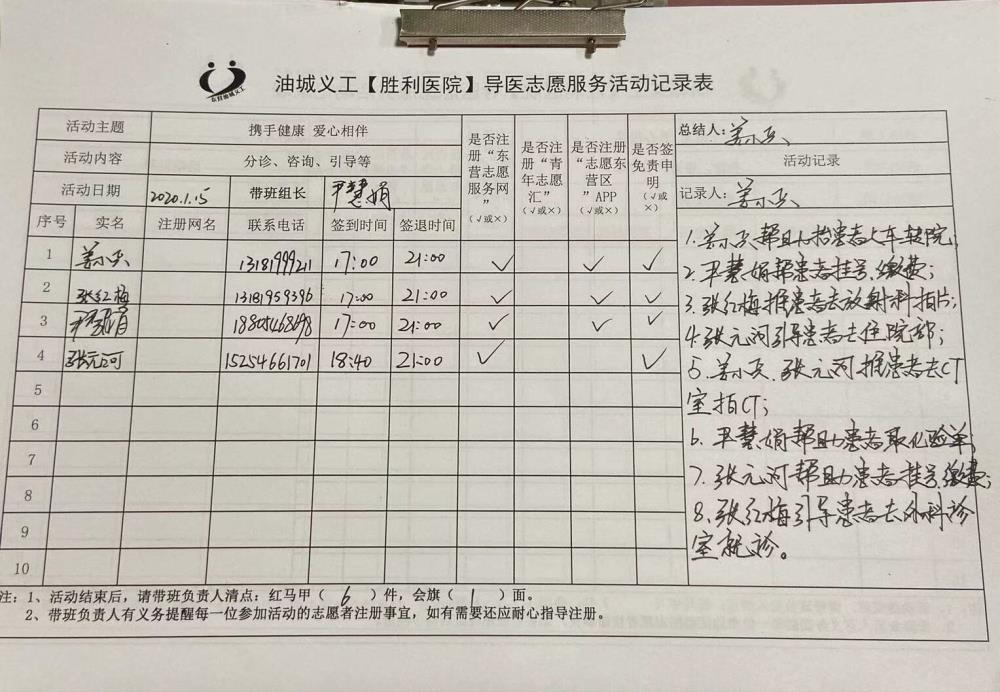 东营油城义工
油城义工【胜利医院】导医志愿服务活动记录表
活动主题 携手健康 爱心相伴 是否注册“东营志愿服务网”（√或×） 是否注册“青年志愿汇”（√或×） 是否注册“志愿东营区”APP（√或×） 是否签免责申明（√或×） 总结人：姜小兵
活动内容 分诊、咨询、引导等 活动记录
活动日期 2020.1.15 带班组长 尹慧娟 记录人：姜小兵
序号 实名 注册网名 联系电话 签到时间 签退时间
1 姜小兵 13181999211 17:00 21:00 √ √ √
2 张红梅 13181959396 17:00 21:00 √ √ √
3 尹慧娟 18805468698 17:00 21:00 √ √ √
4 张元河 15254661701 18:40 21:00 √ √
5
6
7
8
9
10
1.姜小兵帮助抬患者上车转院;
2.尹慧娟帮患者挂号、缴费;
3.张红梅推患者去放射科拍片;
4.张元河引导患者去住院部;
5、姜小兵、张元河推患者去CT
室拍CT;
6、尹慧娟帮助患者取化验单;
7、张元河帮助患者挂号、缴费;
8、张红梅引导患者去外科诊
室就诊。
注：1、活动结束后，请带班负责人清点：红马甲（ 6 ）件，会旗（ 1 ）面。
2、带班负责人有义务提醒每一位参加活动的志愿者注册事宜，如有需要还应耐心指导注册。